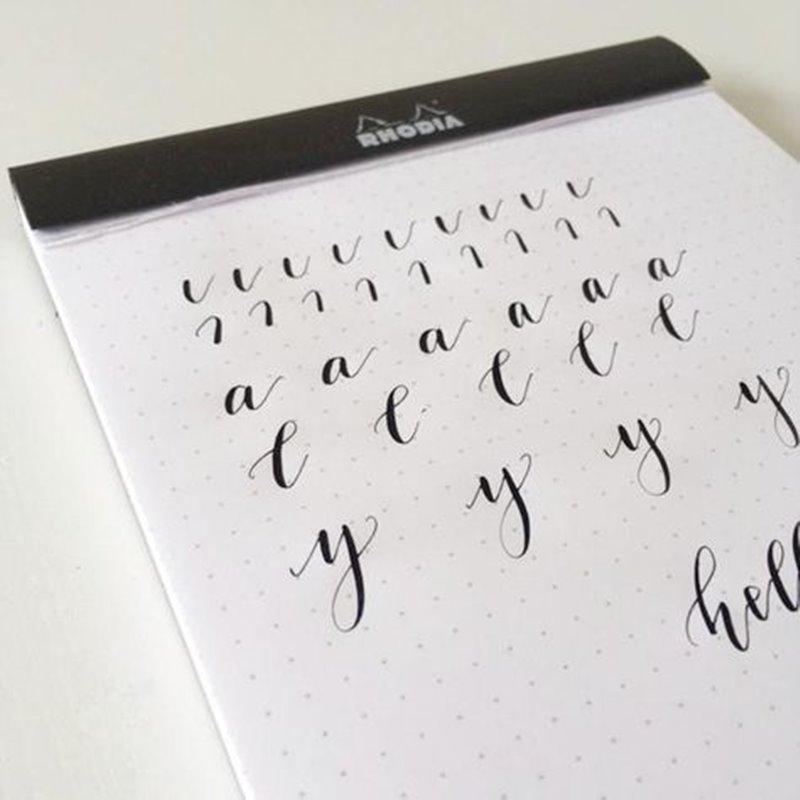 RHODIA
a a a a a a
l l l l l
y y y y
hell